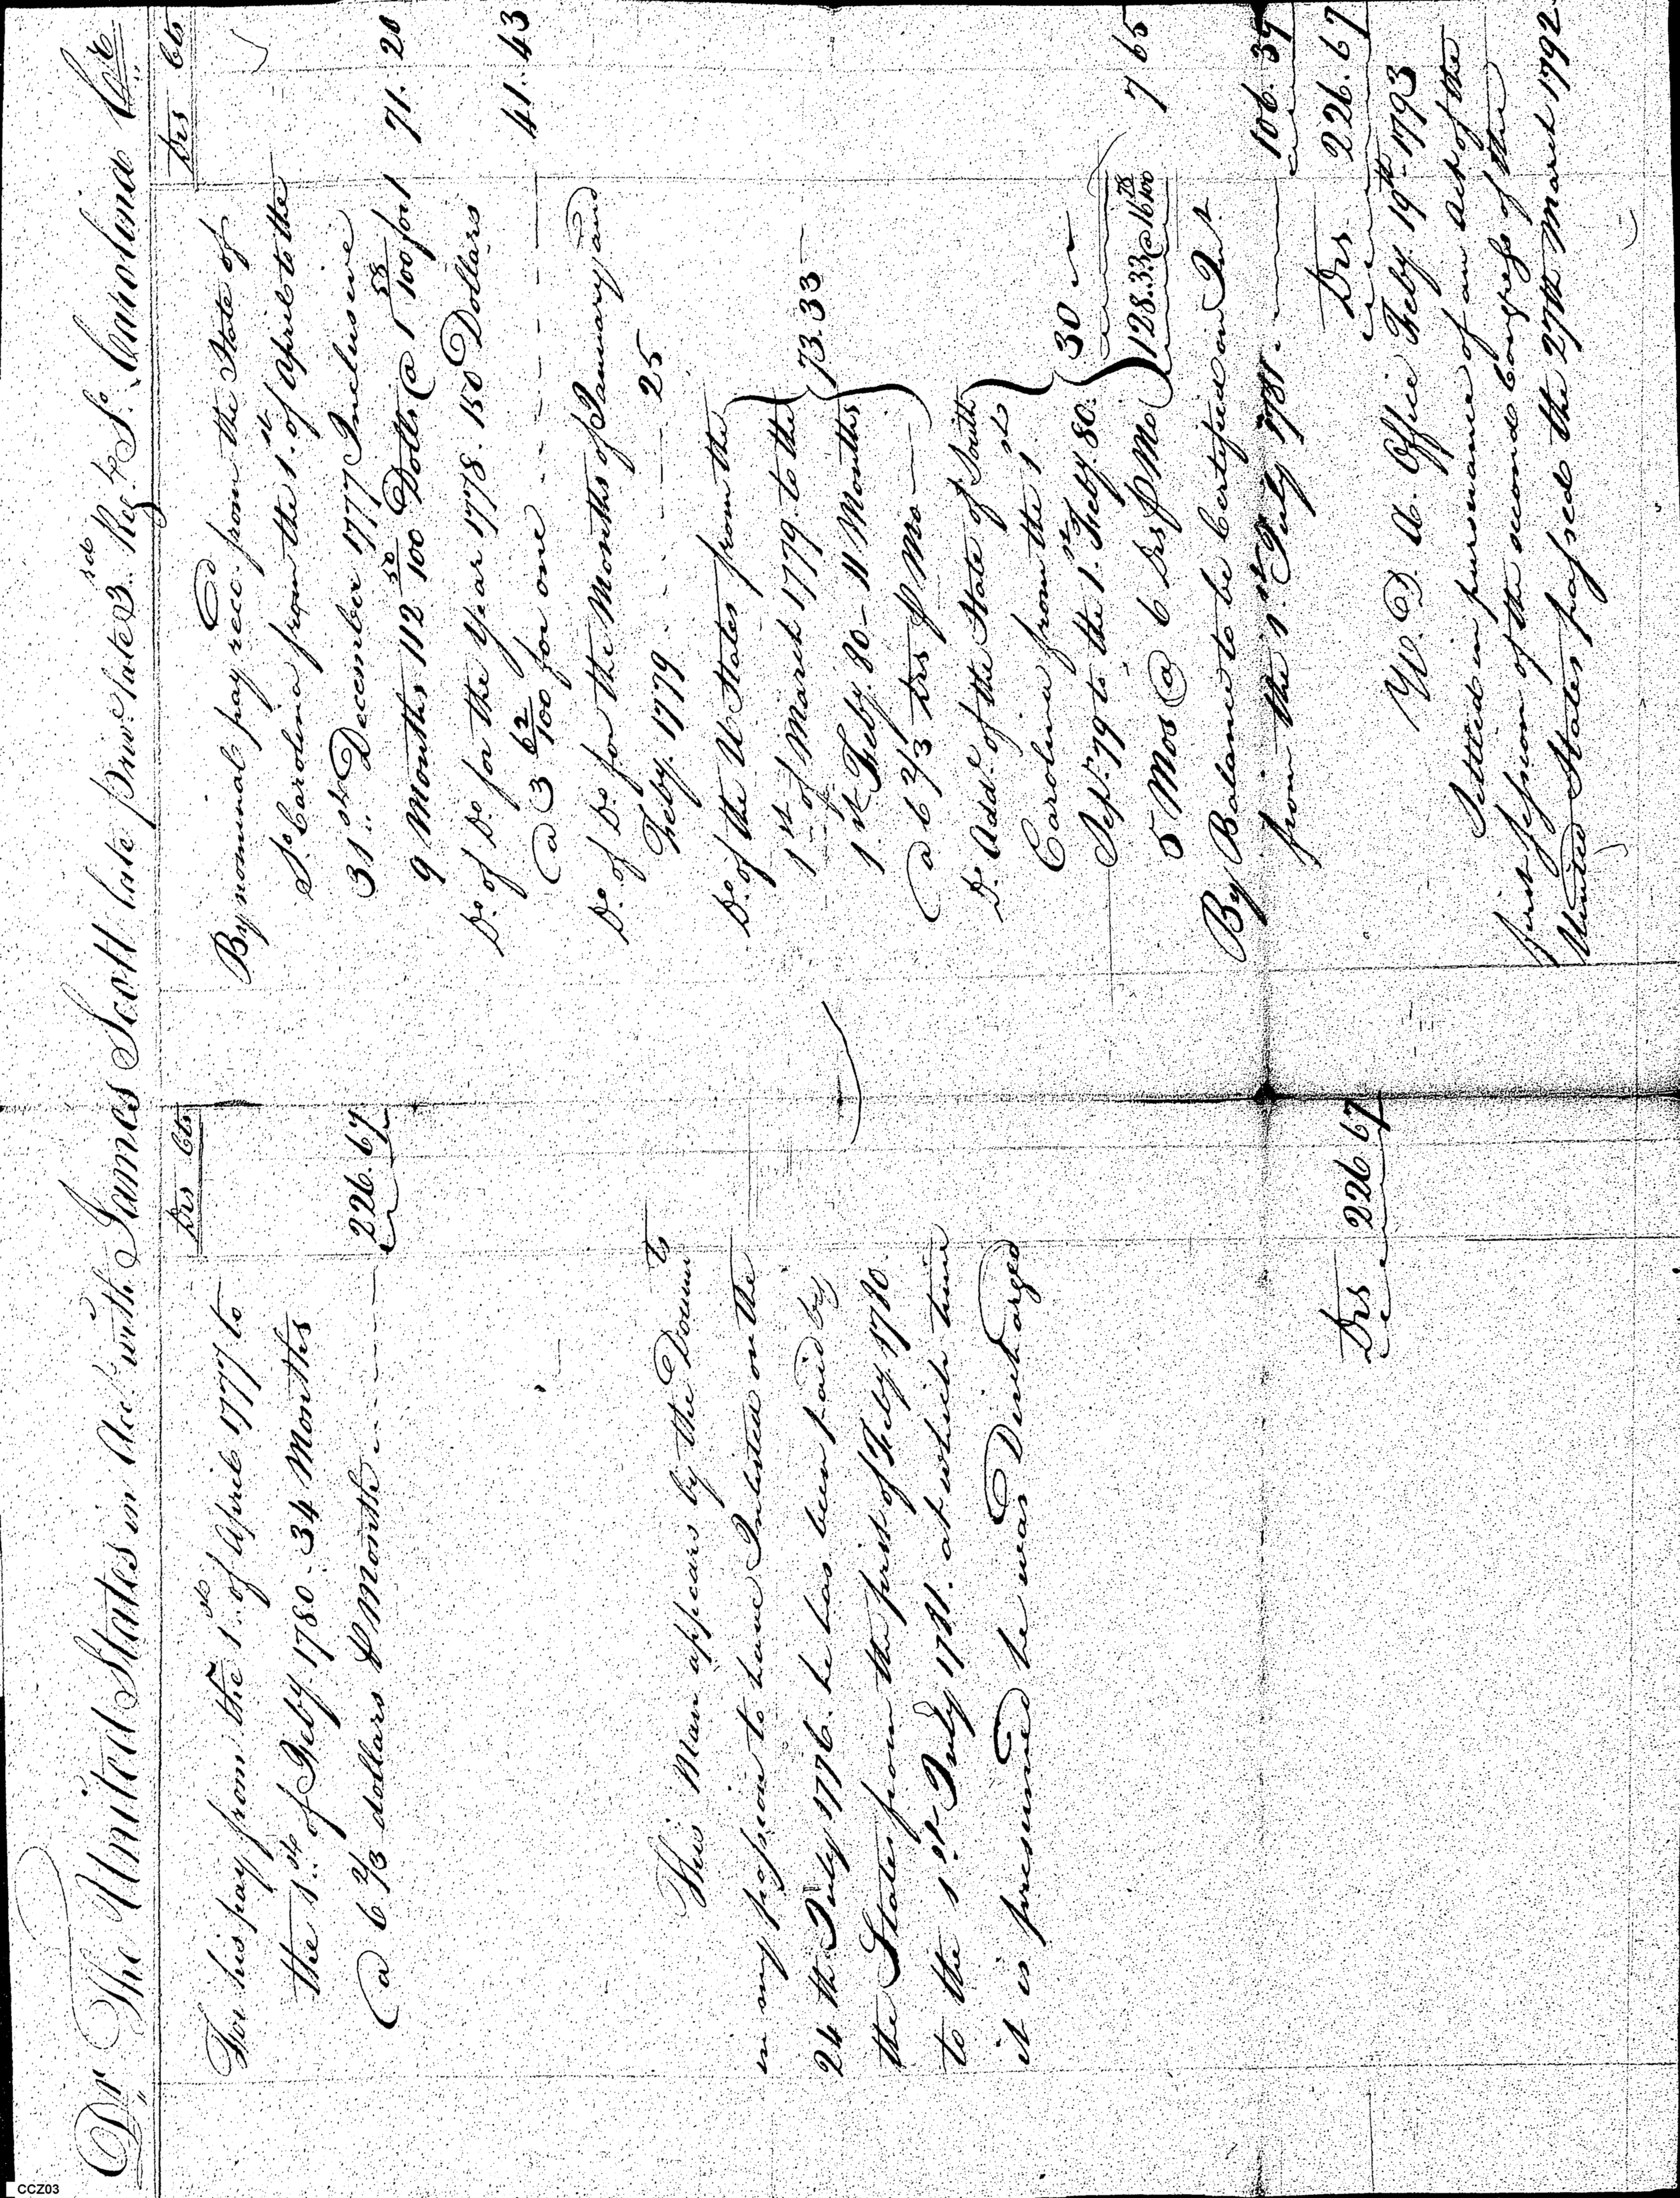 Dr. The United States in Acct. with James Scott late private 3rd Regt. So. Carolina Cr.
Drs Cts
For his pay from the 1st. of April 1777 to
the 1st. of Feby. 1780. 34 Months
@ 6 2/3 dollars ⅌ Month 226.67
This Man appears by the Documts
in my possession to have Inlisted on the
24th July 1776. he has been paid by
the States from the first of Feby. 1780.
to the 1st. July 1781. at which time
it is presumed he was Discharged
Drs 226.67
Drs Cts
By nominal pay recd. from the State of
So. Carolina from the 1st. of April to the
31st. December 1777 Inclusive
9 Months 112 50/100 Dolls @ 1 58/100 for 1 71.20
Do. of Do. for the year 1778. 150 Dollars
@ 3 62/100 for one 41.43
Do. of Do. for the Months of January and
Feby. 1779 25
Do. of the U States from the
1st. of March 1779. to the
1st. Feby. 80 - 11 Months 73.33
@ 6 2/3 Drs ⅌ Mo
Do. Addl. of the State of South
Carolina from the 1st
Sept. 79 to the 1st. Feby. 80. 30
5 Mos @ 6 Drs ⅌ Mo 128.33 @ 16 78/100 7 65
By Balance to be Certified on Int.
from the 1st. July 1781. 106.39
Drs 226.67
W. D. A. Office Feby. 19th. 1793
Settled in pursuance of an act of the
first session of the second Congress of the
United States passed the 27th March 1792
CCZ03